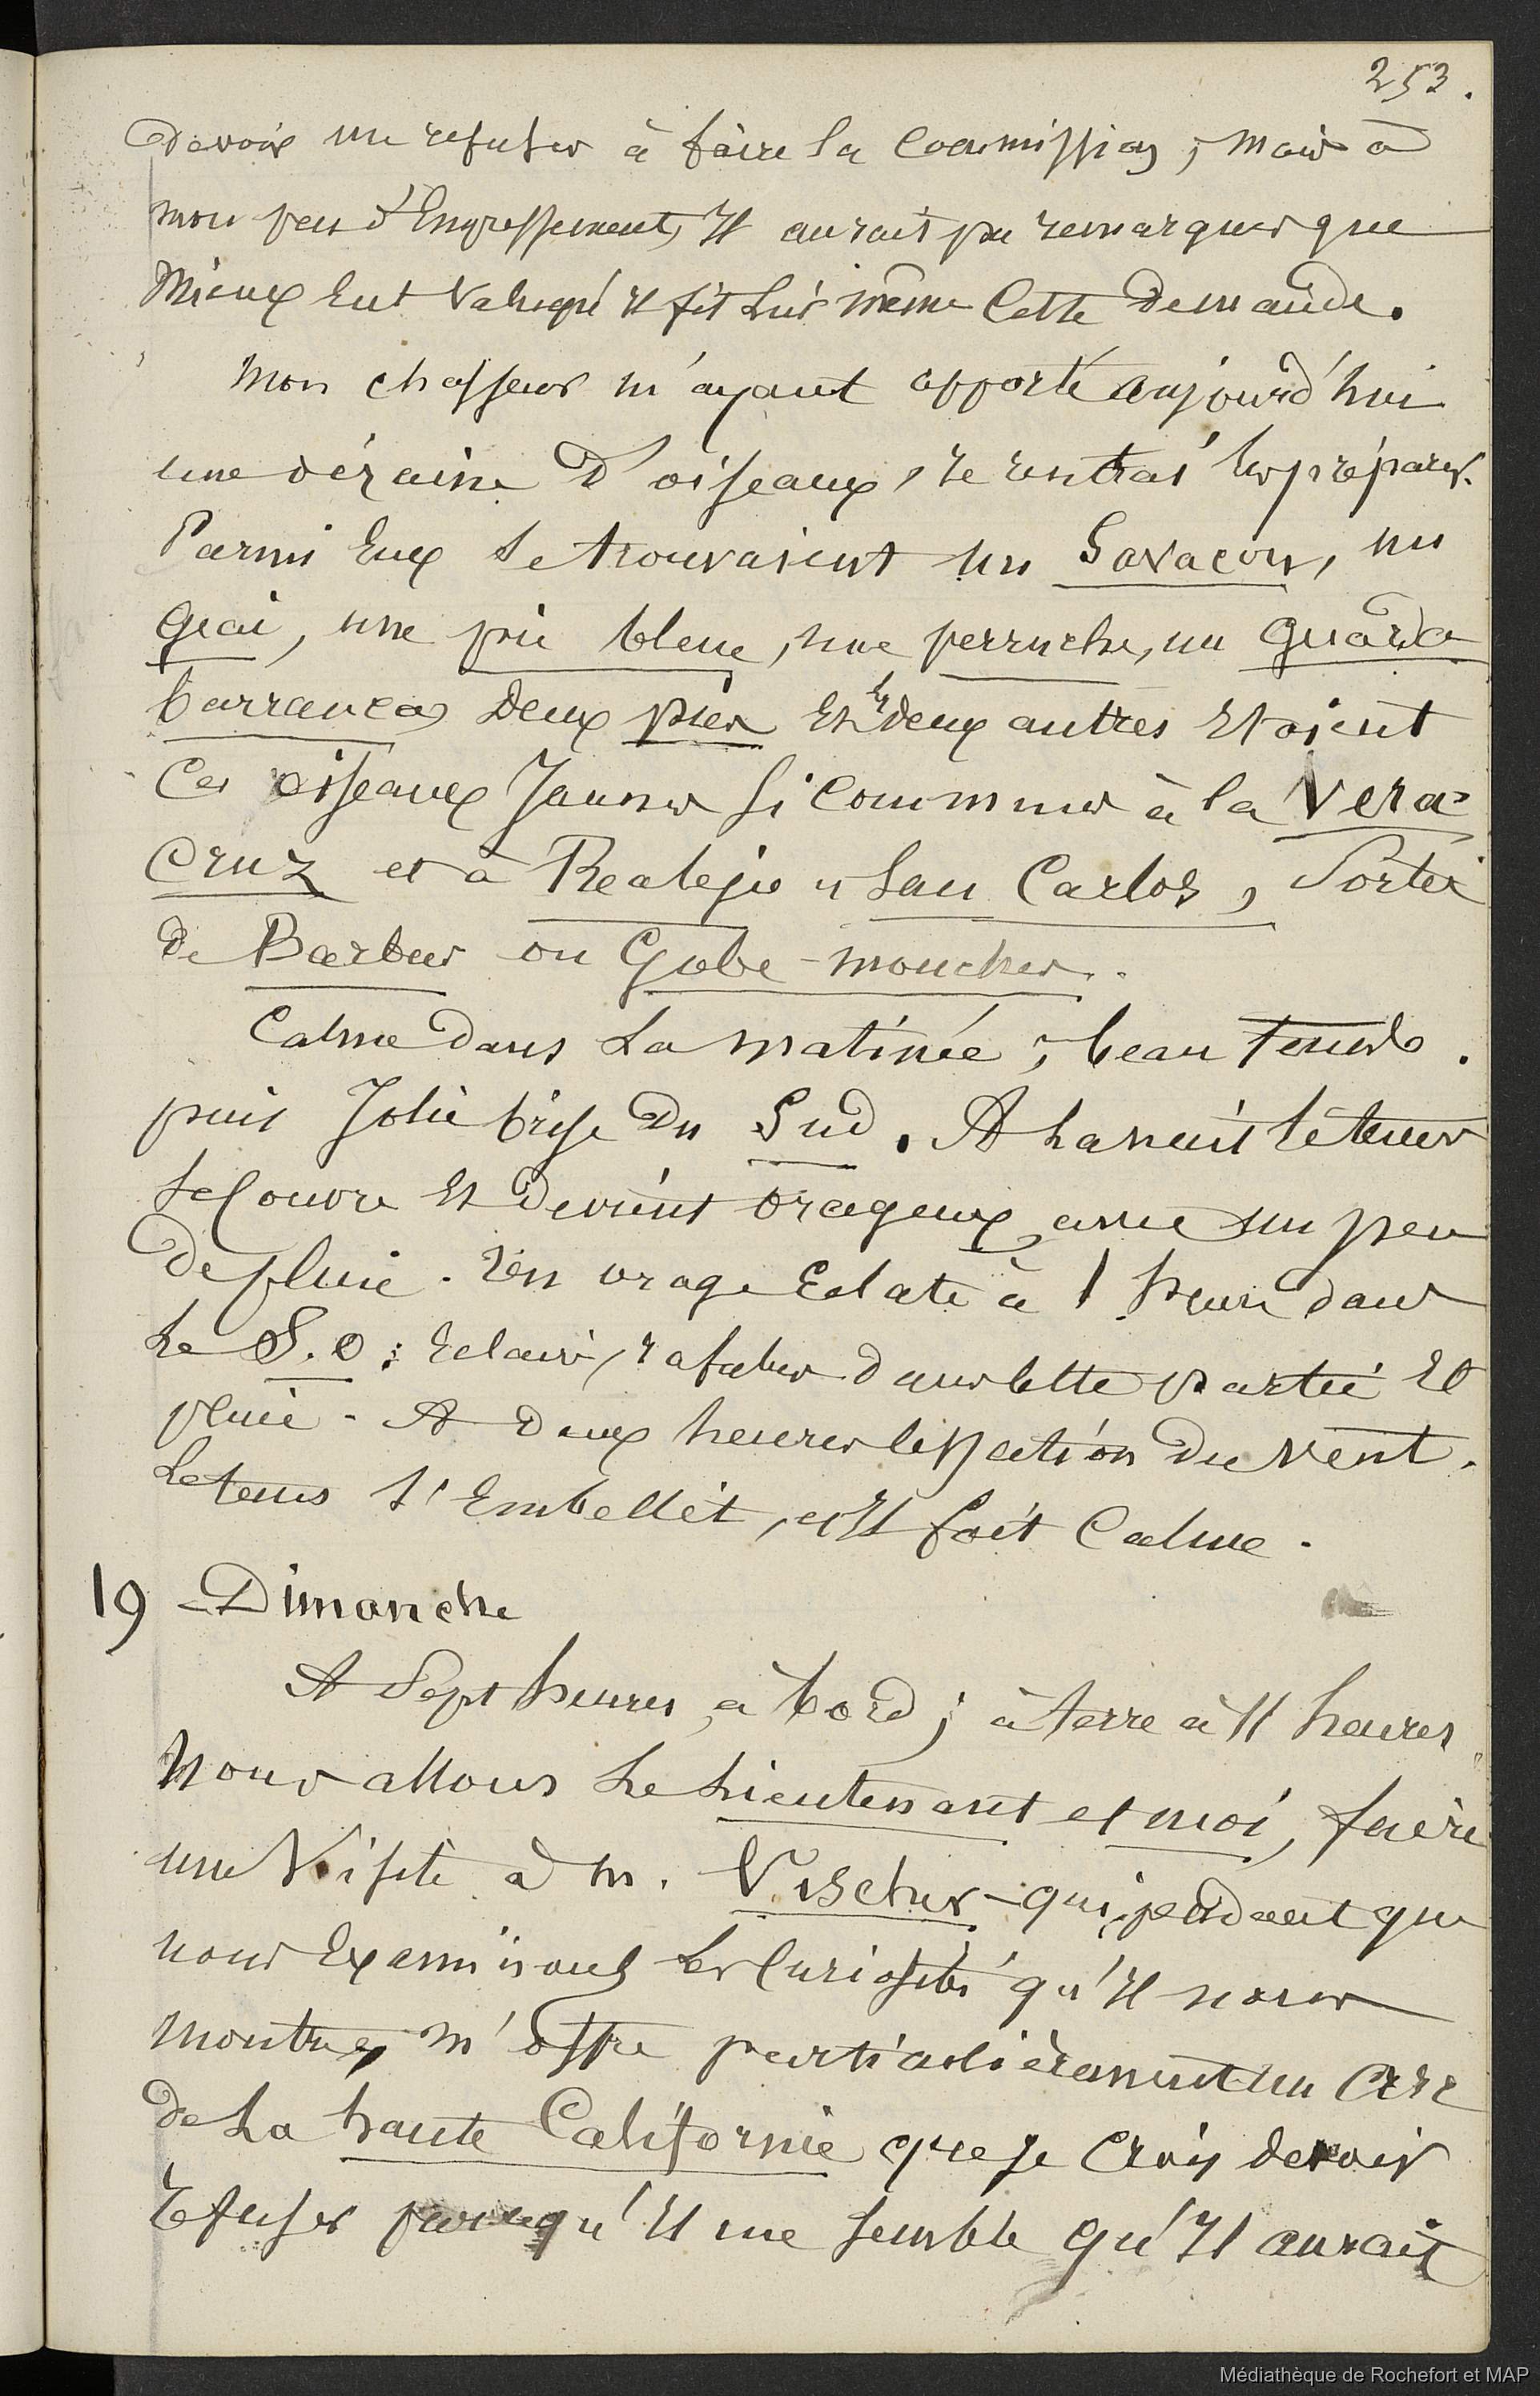 253.
devoir me refuser à faire la Commission ; mais à
mon peu d'Empressement, Il aurait pu remarquer que
Mieux Eut Valu qu'il fit Lui même Cette Demande.
Mon chasseur m'ayant apporté aujourd'hui
une dézaine D'oiseaux, je rentrai les préparer.
Parmi Eux Se trouvaient un Savacou, un
Geai, une pie bleue, une perruche, un Guarda
barranca, Deux pies Et les deux autres Etaient
Ces oiseaux Jaunes Si Communs à la Vera-
Cruz et à Realejo et San Carlos, Sorte
de Barbus ou Gobe-mouches.
Calme dans La matinée ; beau temps.
puis Jolie brise du Sud. A La nuit le tems
Se Couvre Et devient orageux avec un peu
De pluie. Un orage Eclate à 1 heure dans
Le S.O : Eclairs, rafales dans Cette partie Et
pluie. A Deux heures Cessation Du vent.
Le tems S'Embellit, et Il fait Calme.
19 Dimanche
A Sept heures, à bord ; à terre à 11 heures.
Nous allons Le Lieutenant et moi, faire
une Visite à M. Vischer qui, pendant que
nous Examinons Les Curiosités qu'Il nous
montre, m'offre particulièrement un Arc
de La haute Californie que je Crois devoir
refuser parcequ'Il me Semble qu'Il aurait
Médiathèque de Rochefort et MAP